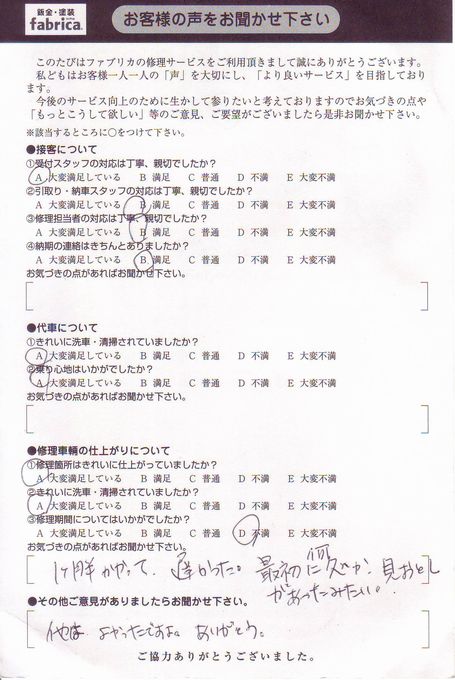 鈑金・塗装
fabrica.
お客様の声をお聞かせ下さい
このたびはファブリカの修理サービスをご利用頂きまして誠にありがとうございます。
私どもはお客様一人一人の「声」を大切にし、「より良いサービス」を目指しており
ます。
今後のサービス向上のために生かして参りたいと考えておりますのでお気づきの点や
「もっとこうして欲しい」等のご意見、ご要望がございましたら是非お聞かせ下さい。
※該当するところに○をつけて下さい。
●接客について
①受付スタッフの対応は丁寧、親切でしたか?
A 大変満足している B 満足 C 普通 D 不満 E 大変不満
②引取り・納車スタッフの対応は丁寧、親切でしたか?
A 大変満足している B 満足 C 普通 D 不満 E 大変不満
③修理担当者の対応は丁寧、親切でしたか?
A 大変満足している B 満足 C 普通 D 不満 E 大変不満
④納期の連絡はきちんとありましたか?
A 大変満足している B 満足 C 普通 D 不満 E 大変不満
お気づきの点があればお聞かせ下さい。
●代車について
①きれいに洗車・清掃されていましたか?
A 大変満足している B 満足 C 普通 D 不満 E 大変不満
②乗り心地はいかがでしたか?
A 大変満足している B 満足 C 普通 D 不満 E 大変不満
お気づきの点があればお聞かせ下さい。
●修理車輌の仕上がりについて
①修理箇所はきれいに仕上がっていましたか?
A 大変満足している B 満足 C 普通 D 不満 E 大変不満
②きれいに洗車・清掃されていましたか?
A 大変満足している B 満足 C 普通 D 不満 E 大変不満
③修理期間についてはいかがでしたか?
A 大変満足している B 満足 C 普通 D 不満 E 大変不満
お気づきの点があればお聞かせ下さい。
1ヶ月半かかって、遅かった。最初に何処か、見おとし
があったみたい。
●その他ご意見がありましたらお聞かせ下さい。
他は よかったですよ。ありがとう。
ご協力ありがとうございました。